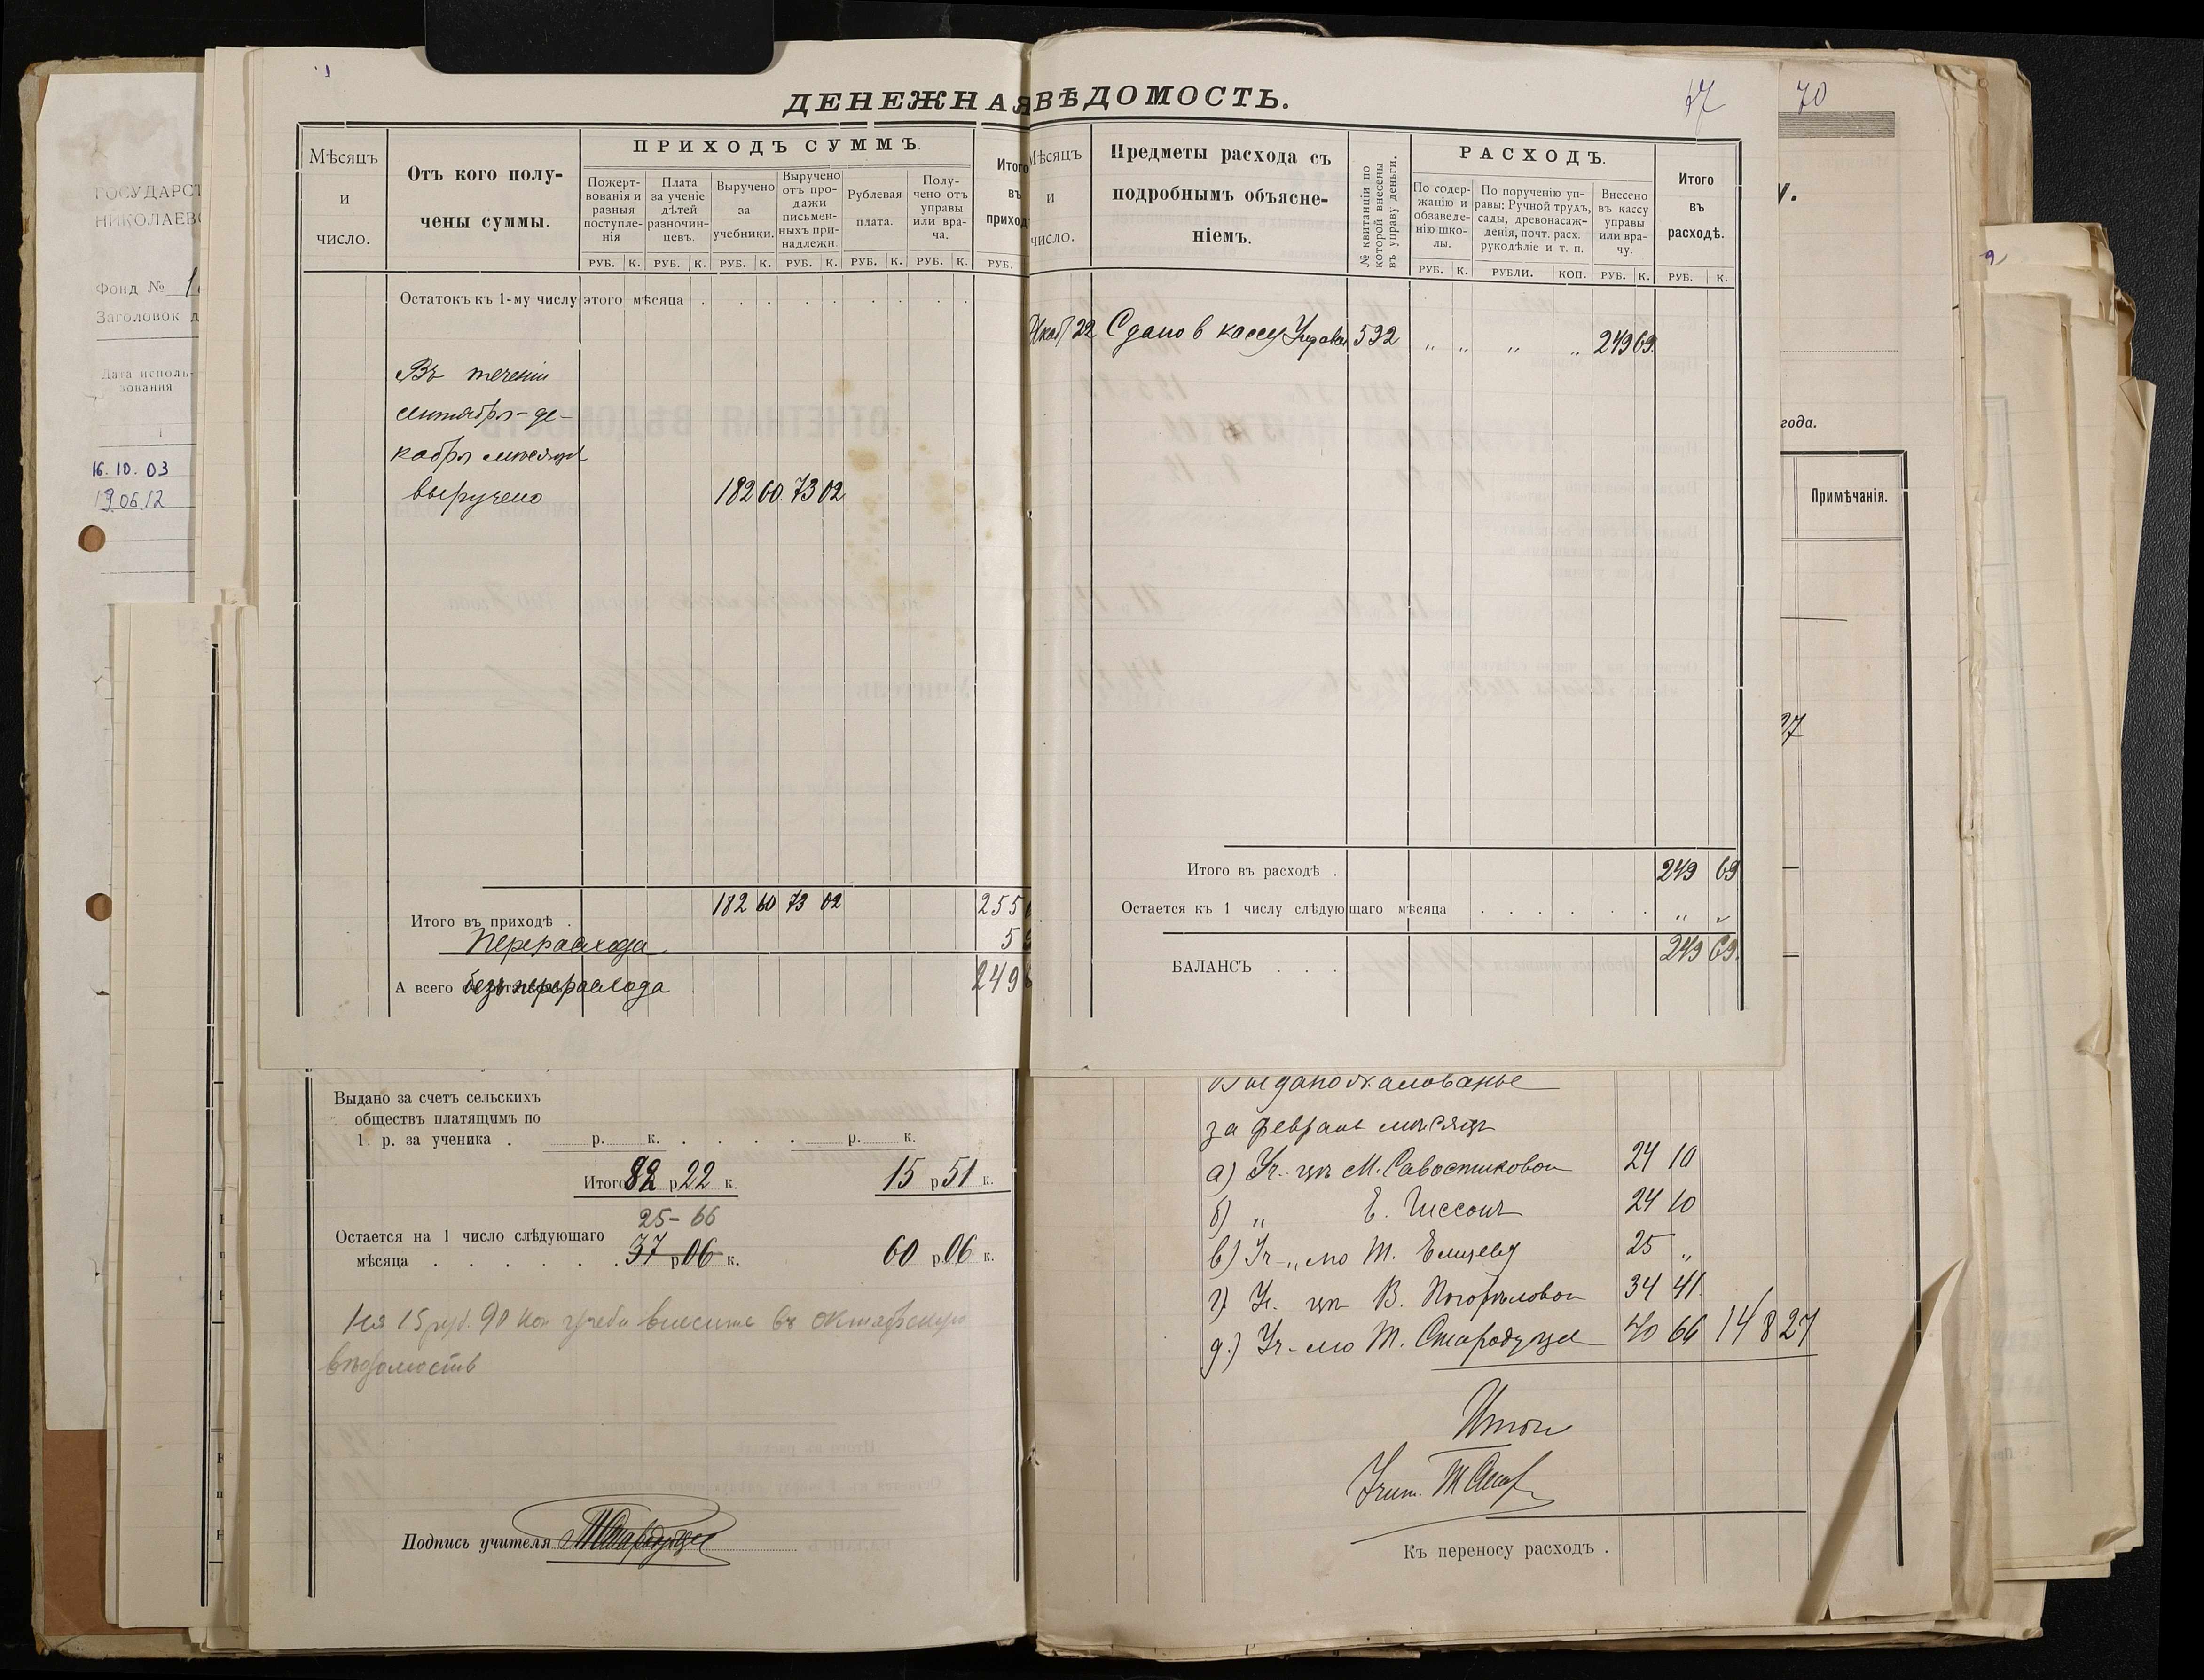 ДЕНЕЖНАЯ ВѢДОМОСТЬ.
17
70
ГОСУДАРСТ
НИКОЛАЕВС
Фонд №
Заголовок д
Дата исполь-
зования
16.10.03
19.06.12
Мѣсяцъ
и
число.
Отъ кого полу-
чены суммы.
ПРИХОДЪ СУММЪ.
Пожерт-
вованія и
разныя
поступле-
нія
Плата
за ученіе
дѣтей
разночин-
цевъ.
Выручено
за
учебники.
Выручено
отъ про-
дажи
письмен-
ныхъ при-
надлежн.
Рублевая
плата.
Полу-
чено отъ
управы
или вра-
ча.
Итого
въ
приход
РУБ. К. РУБ. К. РУБ. К. РУБ. К. РУБ. К. РУБ. К. РУБ.
Остатокъ къ 1-му числу этого мѣсяца . . . . . . .
Въ теченіи
сентябрь-де-
кабрь мѣсяцы
выручено 182 60. 73 02
Итого въ приходѣ . 182 60 73 02 255
Перерасхода 5
А всего безъ перерасхода 249
Мѣсяцъ
и
число.
Предметы расхода съ
подробнымъ объясне-
ніемъ.
№ квитанціи по
которой внесены
въ управу деньги.
РАСХОДЪ.
По содер-
жанію и
обзаведе-
нію шко-
лы.
По порученію уп-
равы: Ручной трудъ,
сады, древонасаж-
денія, почт. расх.
рукодѣліе и т. п.
Внесено
въ кассу
управы
или вра-
чу.
Итого
въ
расходѣ.
РУБ. К. РУБЛИ. КОП. РУБ. К. РУБ. К.
22 Сдано в кассу Управы 592 „ „ „ „ 249 69.
Итого въ расходѣ . 249 69
Остается къ 1 числу слѣдующаго мѣсяца . . . . . . „ „
БАЛАНСЪ . . . 249 69.
года.
Примѣчанія.
27
Выдано за счетъ сельскихъ
обществъ платящимъ по
1 р. за ученика . р. к. . . . . р. к.
Итого 82 р 22 к. 15 р 51 к.
25-66
Остается на 1 число слѣдующаго
мѣсяца . . . . . . 37 р 06 к. 60 р 06 к.
На 15 руб. 90 коп учеб внесите въ октябрскую
вѣдомость
Подпись учителя
Выдано жалованье
за февраль мѣсяцъ
а) Уч-цѣ М. Савостиковой 24 10
б) „ Е. Гиссонъ 24 10
в) Уч-„лю Т. 25 „
г) Уч. цѣ В. Погорѣловой 34 41.
д.) Уч-лю Т. Стародубце 40 66 148 27
Итого
Учит.
Къ переносу расходъ .